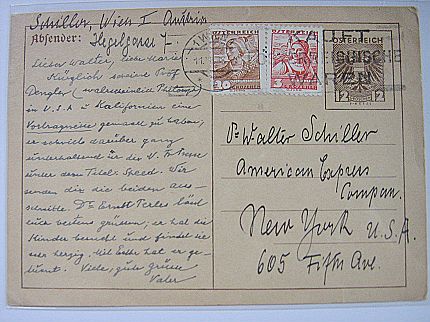 Schiller, Wien I Austria
Absender: Hegelgasse 7.
Lieber Walter, liebe Marie!
Kürzlich Prof.
Dengler
in U.S.A. Kalifornien eine
Vortragsreise gemacht zu haben;
er schreibt darüber ganz
unterhaltend in der N. Fr. Presse
unter dem Titel: Speed. Wir
senden dir die beiden Aus-
schnitte. Dr Ernst Perles läsd
euch bestens grüssen; er hat die
Kinder besucht und findet sie
sehr herzig. Mit hat er ge-
Viele, gute Grüsse
Vater
KAUFET
ÖSTERREICHISCHE
WAREN
ÖSTERREICH
12 12
Dr Walter Schiller
American Express
Company.
New York U.S.A.
605 Fifth Ave.